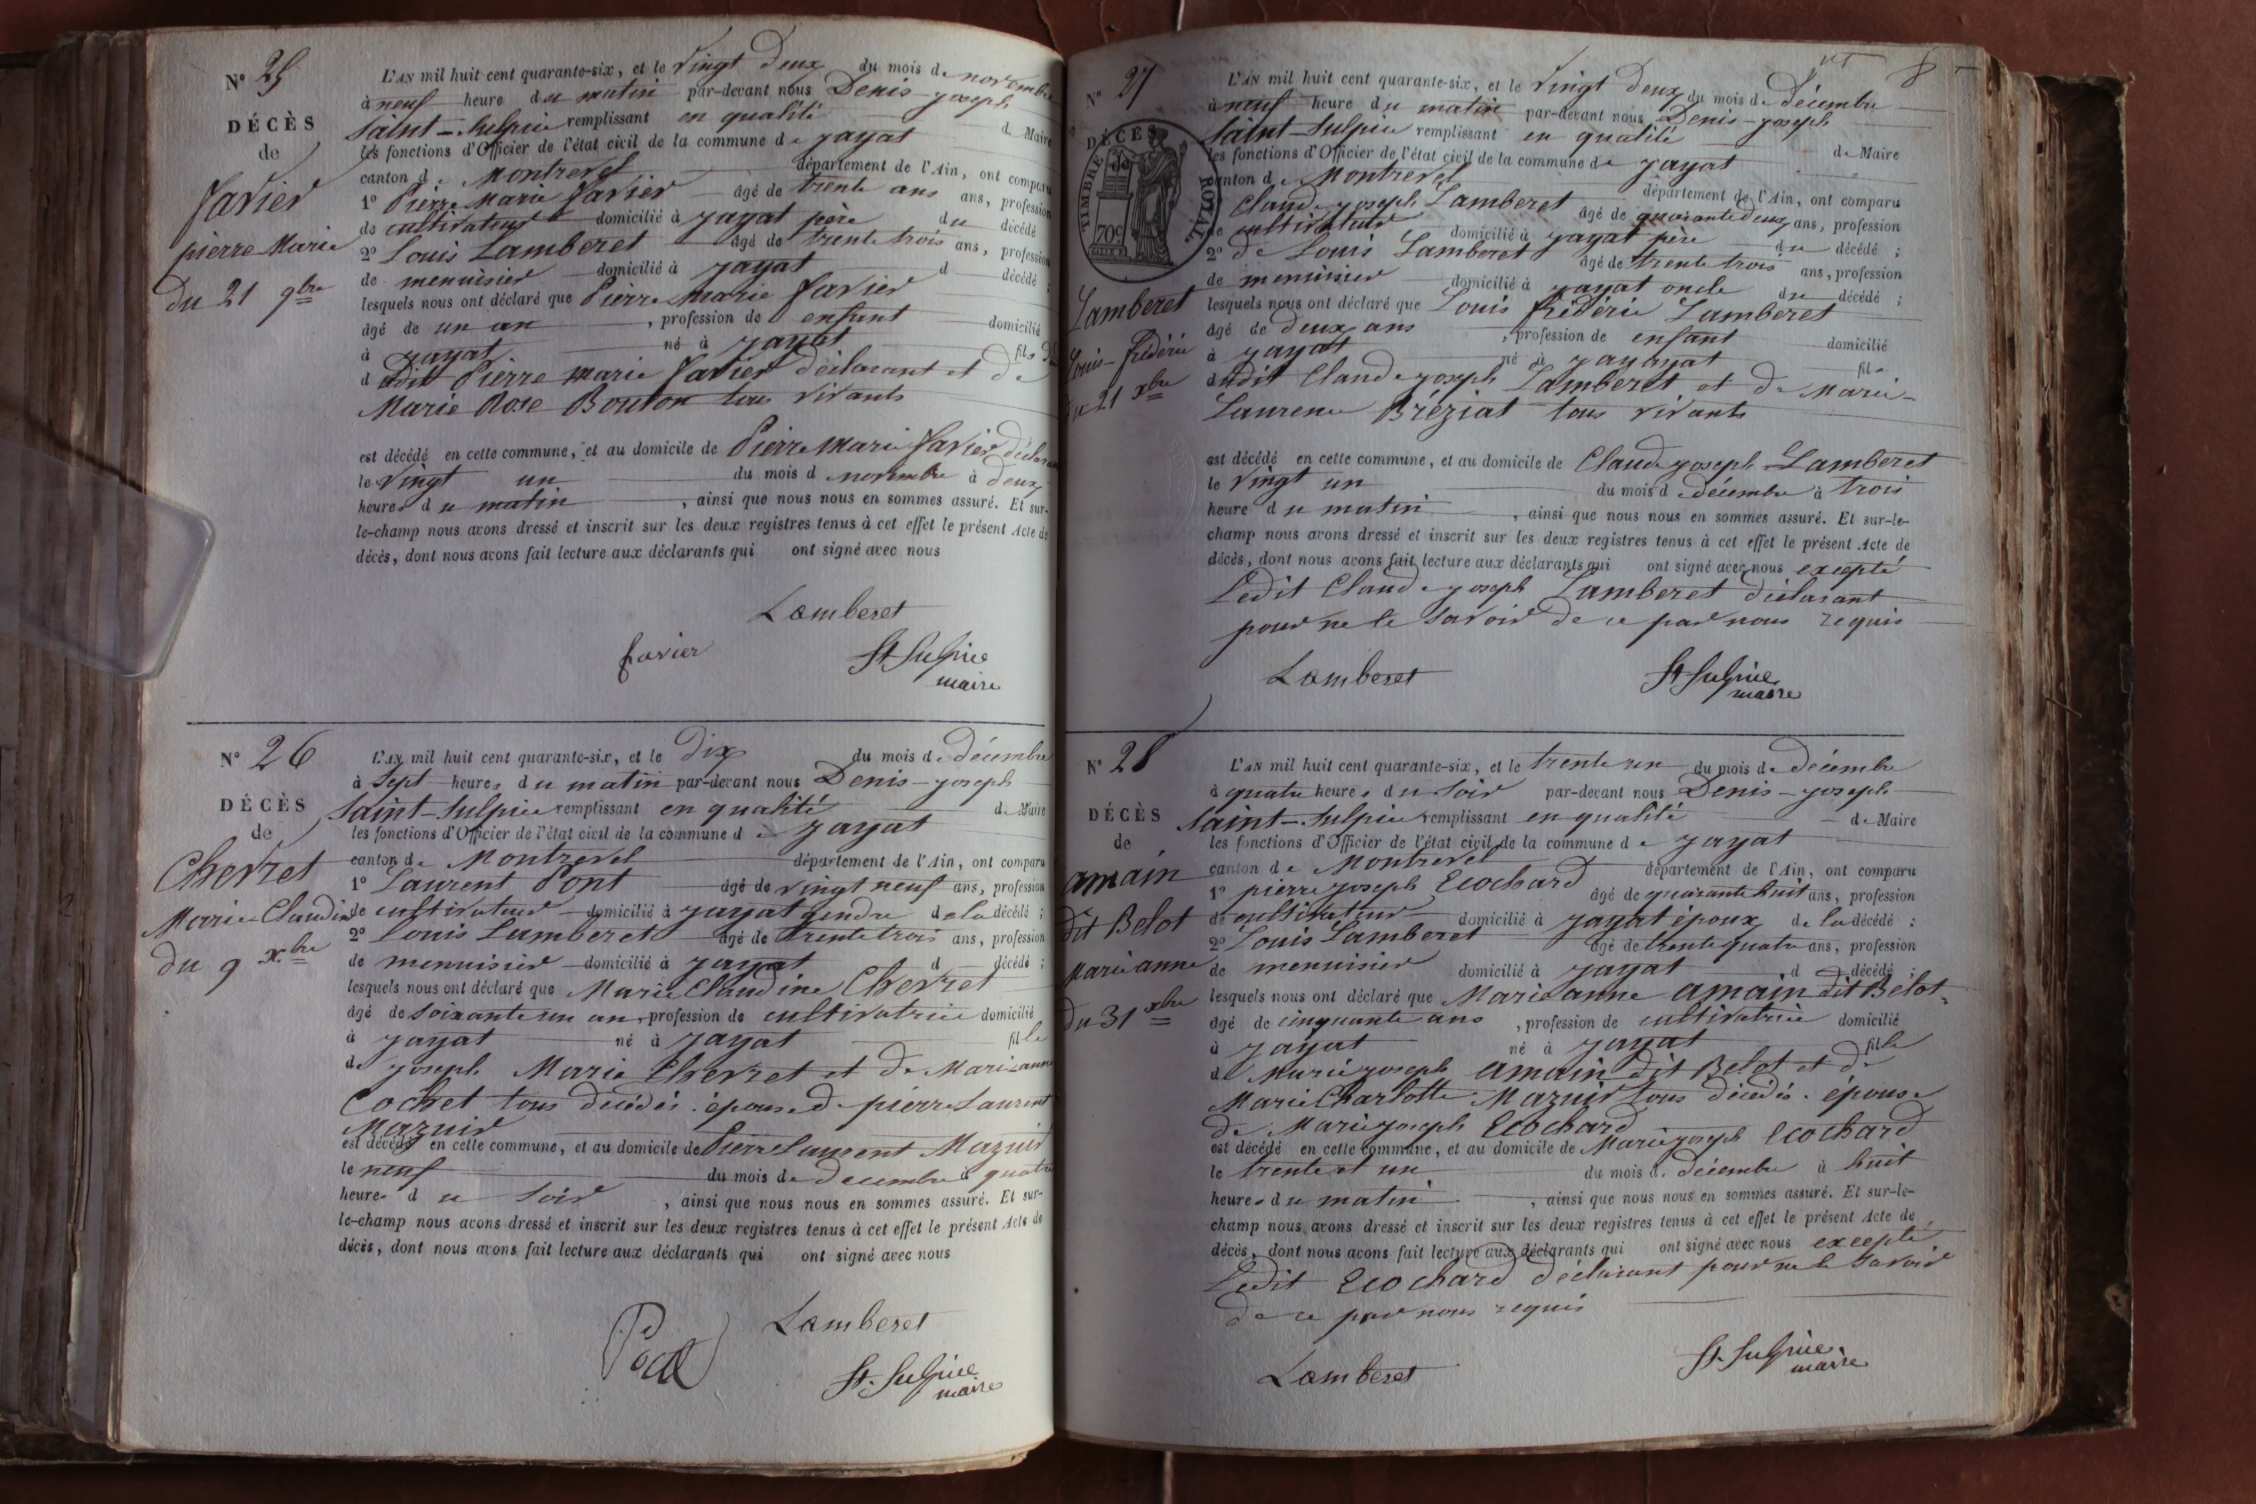 N° 25
DÉCÈS
de
Favier
pierre-Marie
du 21 9bre
L'AN mil huit cent quarante-six, et le vingt deux du mois de novembre
à neuf heure du matin par-devant nous Denis-joseph
Saint-Sulpice remplissant en qualité de Maire
les fonctions d'Officier de l'état civil de la commune de jayat
canton de Montrevel département de l'Ain, ont comparu
1° Pierre Marie Favier âgé de trente ans ans, profession
de cultivateur domicilié à jayat père du décédé
2° Louis Lamberet âgé de trente trois ans, profession
de menuisier domicilié à jayat d décédé ;
lesquels nous ont déclaré que Pierre marie Favier
âgé de un an , profession de enfant domicilié
à jayat né à jayat fils
dudit Pierre Marie Favier déclarant et de
Marie Rose Bouton tous vivants
est décédé en cette commune, et au domicile de Pierre Marie Favier
le vingt un du mois d novembre à deux
heures du matin , ainsi que nous nous en sommes assuré. Et sur-
le-champ nous avons dressé et inscrit sur les deux registres tenus à cet effet le présent Acte de
décès, dont nous avons fait lecture aux déclarants qui ont signé avec nous
Lamberet
favier
St Sulpice
maire
N° 26
DÉCÈS
de
Chevret
Marie Claudine
du 9 xbre
L'AN mil huit cent quarante-six, et le dix du mois de décembre
à sept heures du matin par-devant nous Denis-joseph
Saint-Sulpice remplissant en qualité de Maire
les fonctions d'Officier de l'état civil de la commune de jayat
canton de Montrevel département de l'Ain, ont comparu
1° Laurent Pont âgé de vingt neuf ans, profession
de cultivateur domicilié à jayat gendre de la décédé ;
2° Louis Lamberet âgé de trente trois ans, profession
de menuisier domicilié à jayat d décédé ;
lesquels nous ont déclaré que Marie Claudine Chevret
âgé de soixante un an, profession de cultivatrice domicilié
à jayat né à jayat fille
de joseph Marie Chevret et de Marieanne
Cochet tous décédés. épouse de pierre Laurent
Mazuir
est décédé en cette commune, et au domicile de Pierre Laurent Mazuir
le neuf du mois de decembre à quatre
heures du soir , ainsi que nous nous en sommes assuré. Et sur-
le-champ nous avons dressé et inscrit sur les deux registres tenus à cet effet le présent Acte de
décès, dont nous avons fait lecture aux déclarants qui ont signé avec nous
Lamberet
St. Sulpice
maire
8
N° 27
DÉCÈS
de
TIMBRE ROYAL
70c
Lamberet
Louis-frédéric
du 21 xbre
L'AN mil huit cent quarante-six, et le vingt deux du mois de décembre
à neuf heure du matin par-devant nous Denis-joseph
Saint-Sulpice remplissant en qualité de Maire
les fonctions d'Officier de l'état civil de la commune de jayat
canton de Montrevel département de l'Ain, ont comparu
Claude joseph Lamberet âgé de quarante deux ans, profession
de cultivateur domicilié à jayat père du décédé ;
2° de Louis Lamberet âgé de trente trois ans, profession
de menuisier domicilié à jayat oncle du décédé ;
lesquels nous ont déclaré que Louis frédéric Lamberet
âgé de deux ans , profession de enfant domicilié
à jayat né à jayayat fils
dudit Claude joseph Lamberet et de Marie-
Laurence Bréziat tous vivants
est décédé en cette commune, et au domicile de Claude joseph Lamberet
le vingt un du mois d décembre à trois
heure du matin , ainsi que nous nous en sommes assuré. Et sur-le-
champ nous avons dressé et inscrit sur les deux registres tenus à cet effet le présent Acte de
décès, dont nous avons fait lecture aux déclarants qui ont signé avec nous excepté
Ledit Claude joseph Lamberet déclarant
pour ne le savoir de ce par nous requis
Lamberet
St Sulpice
maire
N° 28
DÉCÈS
de
amain
dit Belot
Marieanne
du 31 xbre
L'AN mil huit cent quarante-six, et le trente un du mois de décembre
à quatre heures du soir par-devant nous Denis-joseph
Saint-Sulpice remplissant en qualité de Maire
les fonctions d'Officier de l'état civil de la commune de jayat
canton de Montrevel département de l'Ain, ont comparu
1° pierre joseph Ecochard âgé de quarante huit ans, profession
de cultivateur domicilié à jayat époux de la décédé ;
2° Louis Lamberet âgé de trente quatre ans, profession
de menuisier domicilié à jayat d décédé ;
lesquels nous ont déclaré que Marieanne amain dit Belot
âgé de cinquante ans , profession de cultivatrice domicilié
à jayat né à jayat fille
de Marie joseph amain dit Belot et de
Marie Charlotte Mazuir tous décédés. épouse
de Marie joseph Ecochard
est décédé en cette commune, et au domicile de Marie joseph Ecochard
le trente et un du mois d. décembre à huit
heures du matin , ainsi que nous nous en sommes assuré. Et sur-le-
champ nous avons dressé et inscrit sur les deux registres tenus à cet effet le présent Acte de
décès, dont nous avons fait lecture aux déclarants qui ont signé avec nous excepté
Ledit Ecochard déclarant pour ne le savoir
de ce par nous requis
Lamberet
St. Sulpice
maire